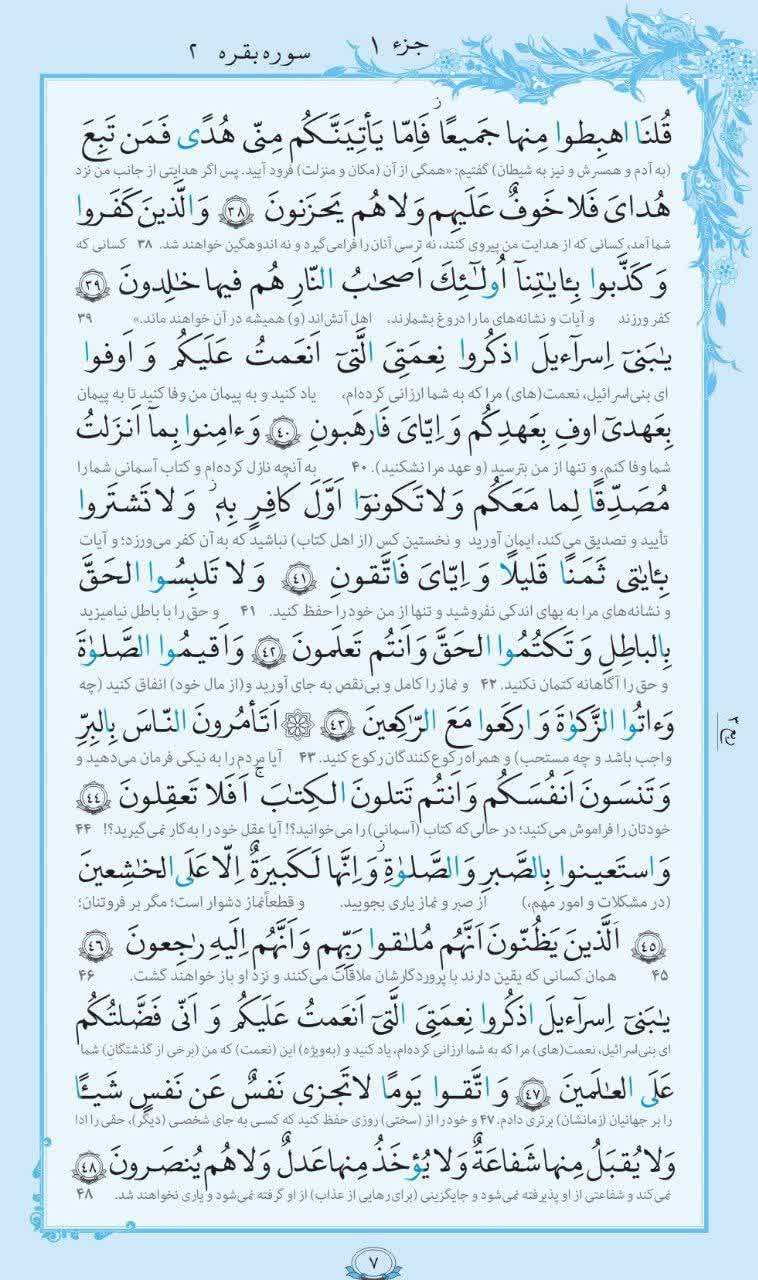 جزء ۱
سوره بقره ۲
قُلنَا اهبِطوا مِنها جَمیعًا ۖ فَاِمّا یَأتِیَنَّکُم مِنّی هُدًی فَمَن تَبِعَ
(به آدم و همسرش و نیز به شیطان) گفتیم: «همگی از آن (مکان و منزلت) فرود آیید. پس اگر هدایتی از جانب من نزد
هُدایَ فَلا خَوفٌ عَلَیهِم وَلا هُم یَحزَنونَ ﴿٣٨﴾ وَالَّذینَ کَفَروا
شما آمد، کسانی که از هدایت من پیروی کنند، نه ترسی آنان را فرامی‌گیرد و نه اندوهگین خواهند شد. ۳۸ کسانی که
وَ کَذَّبوا بِـٔایٰتِنآ اُولٰٓئِکَ اَصحٰبُ النّارِ هُم فیها خٰلِدونَ ﴿٣٩﴾
کفر ورزند و آیات و نشانه‌های ما را دروغ بشمارند، اهل آتش‌اند (و) همیشه در آن خواهند ماند.» ۳۹
یٰبَنیٓ اِسرآءیلَ اذکُروا نِعمَتِیَ الَّتیٓ اَنعَمتُ عَلَیکُم وَ اَوفوا
ای بنی‌اسرائیل، نعمت(های) مرا که به شما ارزانی کرده‌ام، یاد کنید و به پیمان من وفا کنید تا به پیمان
بِعَهدیٓ اوفِ بِعَهدِکُم وَ اِیّایَ فَارهَبونِ ﴿٤٠﴾ وَ ءامِنوا بِمآ اَنزَلتُ
شما وفا کنم، و تنها از من بترسید (و عهد مرا نشکنید). ۴۰ به آنچه نازل کرده‌ام و کتاب آسمانی شما را
مُصَدِّقًا لِما مَعَکُم وَلا تَکونوٓا اَوَّلَ کافِرٍ بِهٖ ۖ وَلا تَشتَروا
تأیید و تصدیق می‌کند، ایمان آورید و نخستین کس (از اهل کتاب) نباشید که به آن کفر می‌ورزد؛ و آیات
بِـٔایٰتی ثَمَنًا قَلیلًا وَ اِیّایَ فَاتَّقونِ ﴿٤١﴾ وَ لا تَلبِسُوا الحَقَّ
و نشانه‌های مرا به بهای اندکی نفروشید و تنها از من خود را حفظ کنید. ۴۱ و حق را با باطل نیامیزید
بِالباطِلِ وَ تَکتُمُوا الحَقَّ وَ اَنتُم تَعلَمونَ ﴿٤٢﴾ وَ اَقیمُوا الصَّلوٰةَ
و حق را آگاهانه کتمان نکنید. ۴۲ و نماز را کامل و بی‌نقص به جای آورید و (از مال خود) انفاق کنید (چه
وَ ءاتُوا الزَّکوٰةَ وَ ارکَعوا مَعَ الرّٰکِعینَ ﴿٤٣﴾ ۞ اَتَأمُرونَ النّاسَ بِالبِرِّ
واجب باشد و چه مستحب) و همراه رکوع‌کنندگان رکوع کنید. ۴۳ آیا مردم را به نیکی فرمان می‌دهید و
وَ تَنسَونَ اَنفُسَکُم وَ اَنتُم تَتلونَ الکِتٰبَ ۚ اَفَلا تَعقِلونَ ﴿٤٤﴾
خودتان را فراموش می‌کنید؛ در حالی که کتاب (آسمانی) را می‌خوانید؟! آیا عقل خود را به کار نمی‌گیرید؟! ۴۴
وَ استَعینوا بِالصَّبرِ وَ الصَّلوٰةِ ۖ وَ اِنَّها لَکَبیرَةٌ اِلّا عَلَی الخٰشِعینَ
(در مشکلات و امور مهم،) از صبر و نماز یاری بجویید. و قطعاً نماز دشوار است؛ مگر بر فروتنان؛
﴿٤٥﴾ اَلَّذینَ یَظُنّونَ اَنَّهُم مُلٰقوا رَبِّهِم وَ اَنَّهُم اِلَیهِ رٰجِعونَ ﴿٤٦﴾
۴۵ همان کسانی که یقین دارند با پروردگارشان ملاقات می‌کنند و نزد او باز خواهند گشت. ۴۶
یٰبَنیٓ اِسرآءیلَ اذکُروا نِعمَتِیَ الَّتیٓ اَنعَمتُ عَلَیکُم وَ اَنّی فَضَّلتُکُم
ای بنی‌اسرائیل، نعمت(های) مرا که به شما ارزانی کرده‌ام، یاد کنید و (به‌ویژه) این (نعمت) که من (برخی از گذشتگانِ) شما
عَلَی العٰلَمینَ ﴿٤٧﴾ وَ اتَّقوا یَومًا لا تَجزی نَفسٌ عَن نَفسٍ شَیـًٔا
را بر جهانیان (زمانشان) برتری دادم. ۴۷ و خود را از (سختی) روزی حفظ کنید که کسی به جای شخصی (دیگر)، حقی را ادا
وَلا یُقبَلُ مِنها شَفاعَةٌ وَلا یُؤخَذُ مِنها عَدلٌ وَلا هُم یُنصَرونَ ﴿٤٨﴾
نمی‌کند و شفاعتی از او پذیرفته نمی‌شود و جایگزینی (برای رهایی از عذاب) از او گرفته نمی‌شود و یاری نخواهند شد. ۴۸
۷